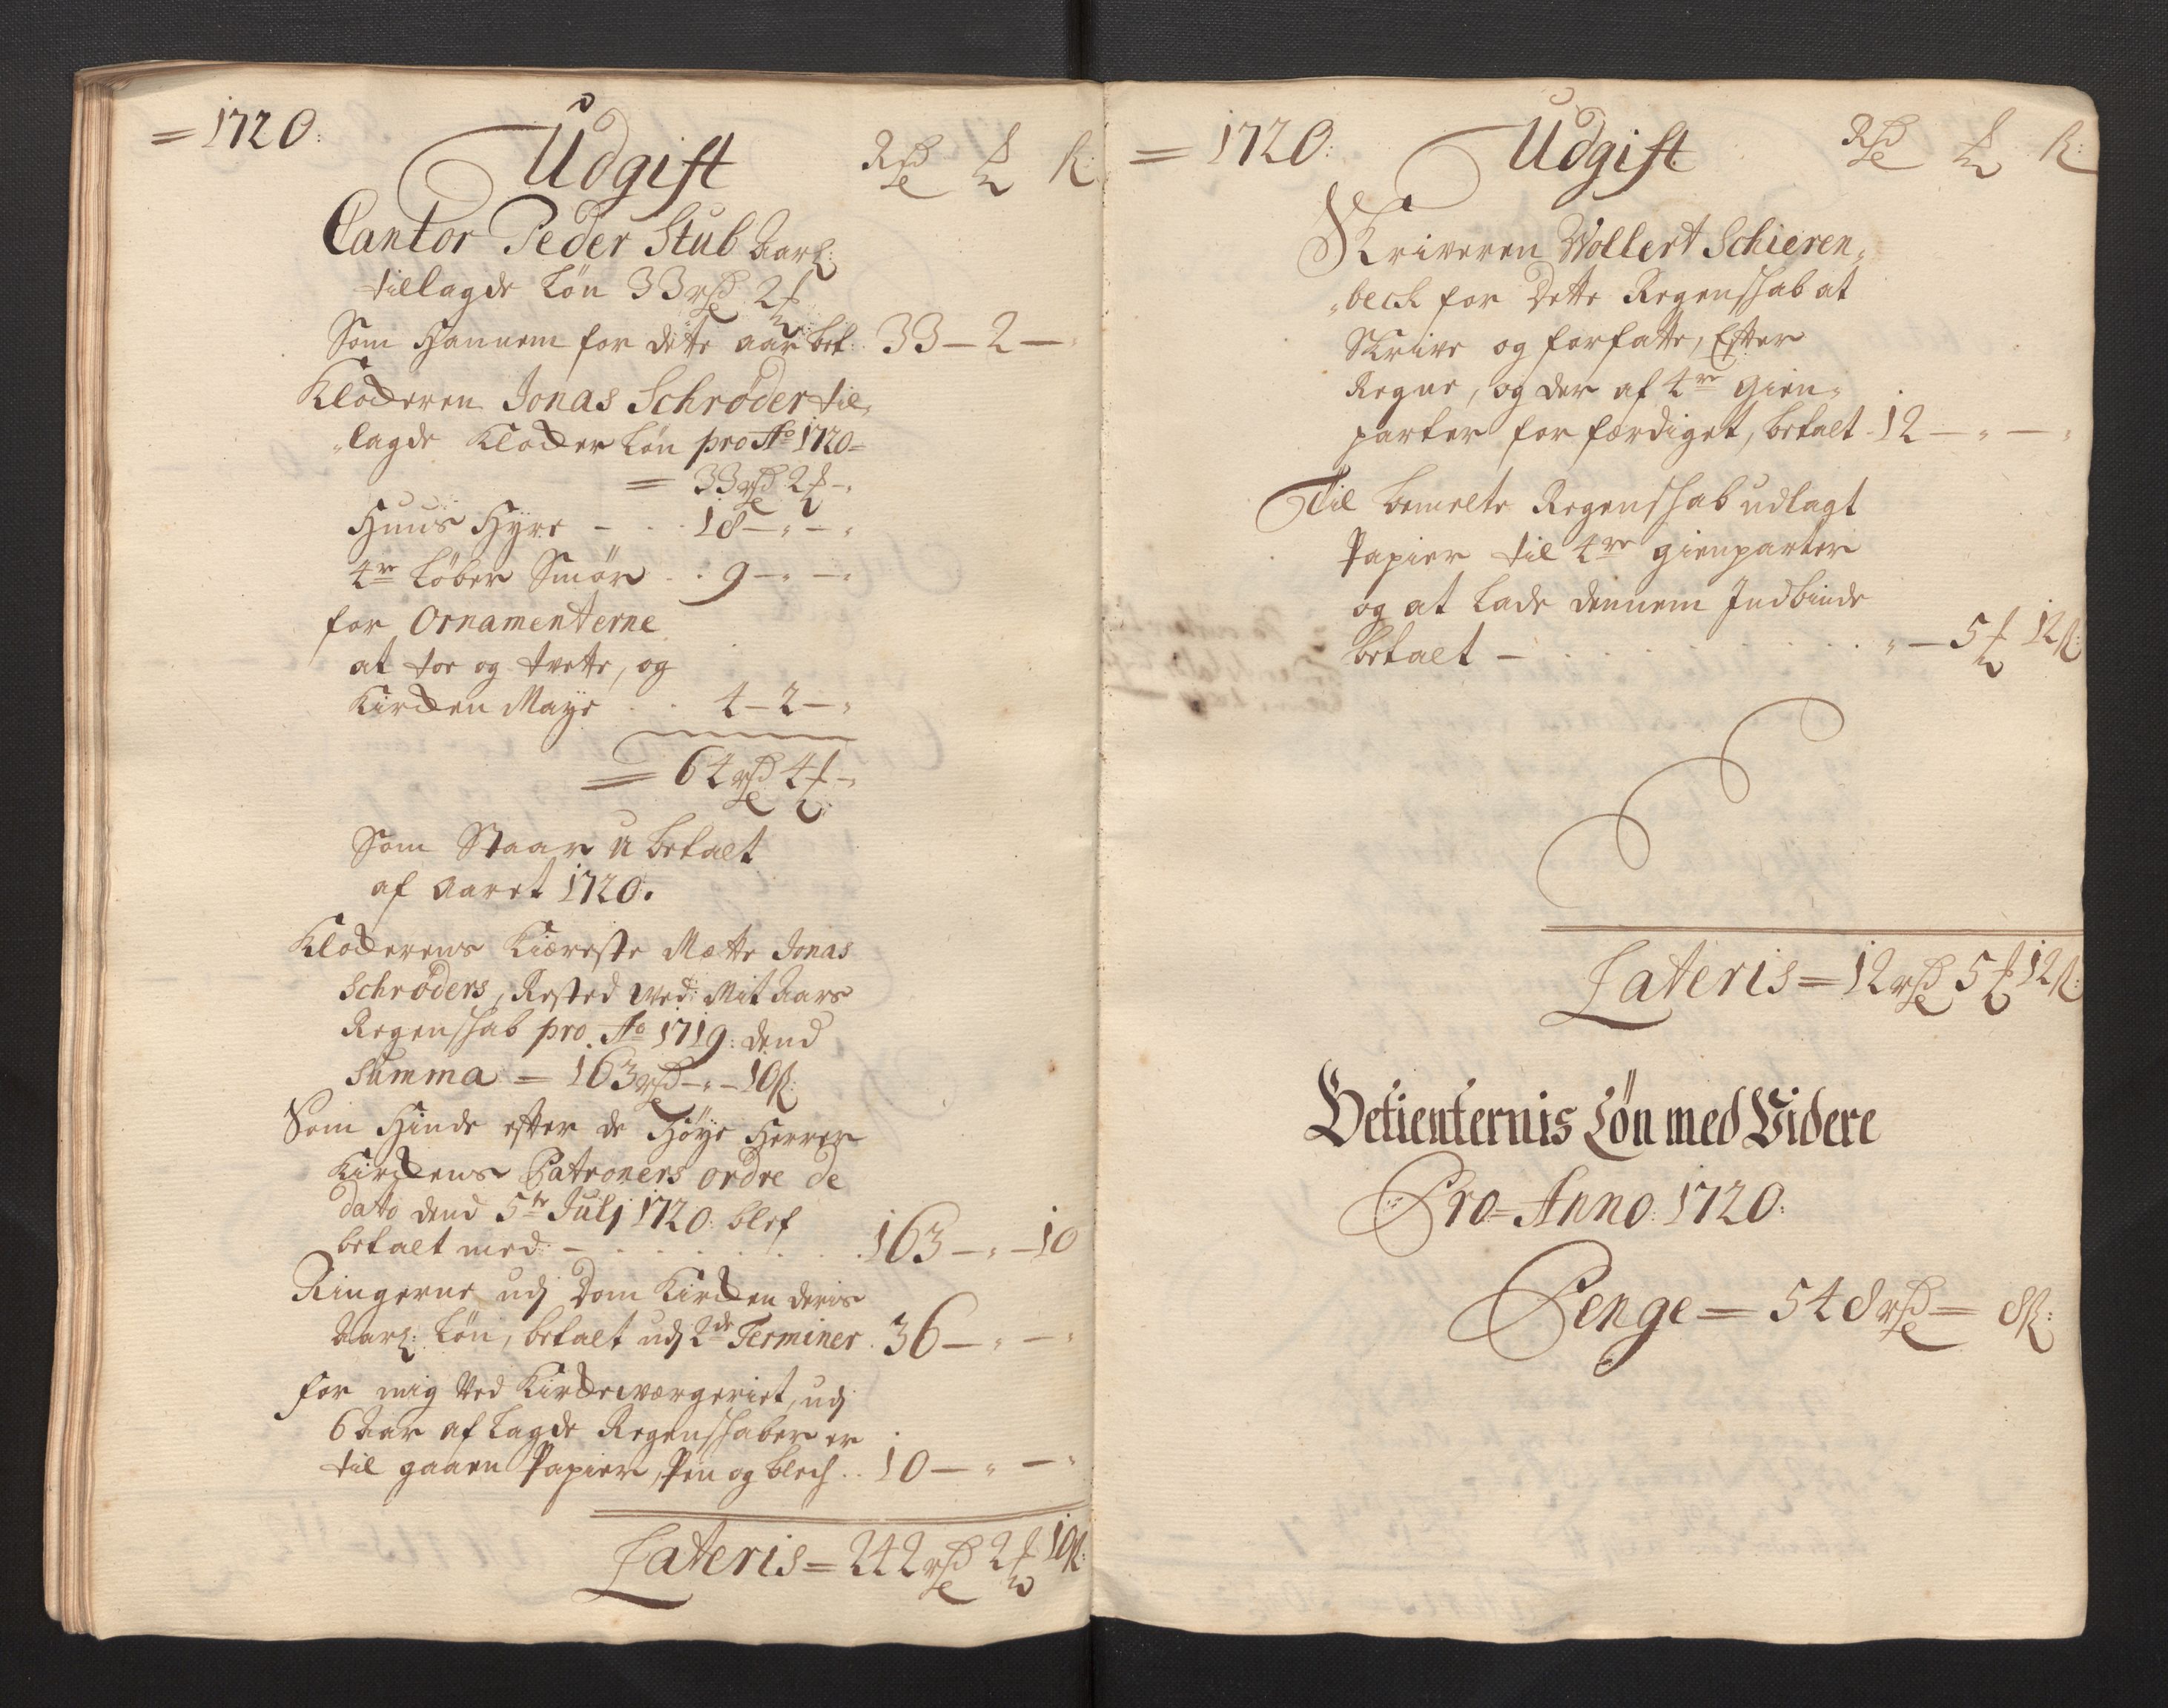 =1720:
Udgift
Rdr ℔ ß:
Cantor Peder Stub Aarl:
tillagde Løn 33 rdr 2 ℔
Som Hannem for dette aar bet: 33 — 2 — "
Klockeren Jonas Schrøder til-
"lagde Klocker Løn pro Ao 1720=
= 33 rdr 2 ℔ - "
Huus Hyre - . . 18 — " — "
4re Løber Smør . . 9 — " — "
for Ornamenterne
at toe og tvette, og
Kircken Maye . . 4 — 2 — "
= 64 rdr 4 ℔ - "
Som Staar u betalt
af Aaret 1720.
Klockerens Kiæreste Mette Jonas
Schrøders, Rested ved Mit Aars
Regenskab pro Ao 1719: dend
Summa = 163 rdr - " - 10 ß:
Som Hinde efter de Høye Herrer
Kirckens Patroners ordre de
dato dend 5te Julj 1720: blef
betalt med: - . . . . 163 — " — 10
Ringerne udj Dom Kircken deris
Aarl: Løn, betalt udj 2de Terminer . 36 — " — "
for mig ved Kirckeværgeriet, udj
6 Aar aflagde Regenskaber er
til gaaen Papier, Pen og blech . . 10 — " — "
Lateris = 242 rdr 2 ℔ 10 ß:
= 1720:
Udgift
Rdr ℔ ß:
Skriveren Wollert Schieren-
"beck for dette Regenskab at
Skrive og forfatte, Efter
Regne, og der af 4re gien-
parter forfærdiget, betalt - 12 — " — "
Til bemelte Regenskab udlagt
Papier til 4re gienparter
og at lade dennem Indbinde
betalt - . . . . " — 5 ℔ 12 ß:
Lateris = 12 rdr 5 ℔ 12 ß:
Betienternis Løn med Videre
Pro = Anno: 1720:
Penge = 548 rdr = 8 ß: